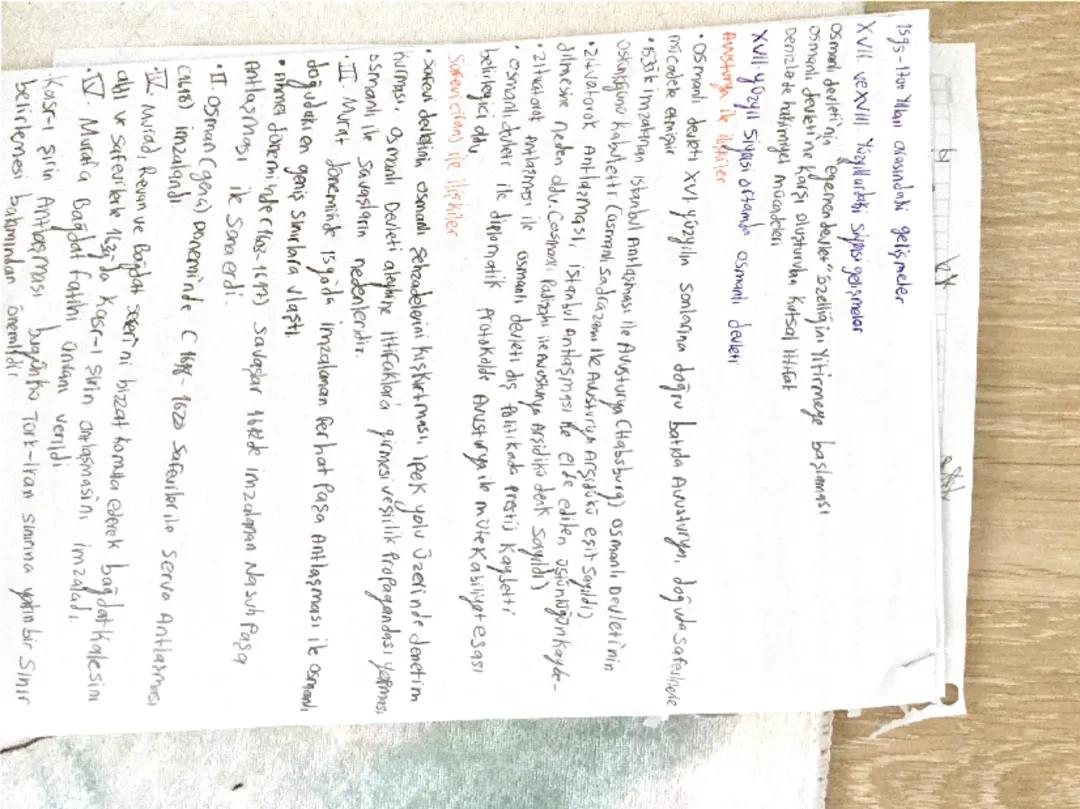 1595-1700 Yılları arasındaki gelişmeler
XVII. ve XVIII. Yüzyıllardaki siyasi gelişmeler
Osmanlı devleti'nin "egemen devlet" özelliğini yitirmeye başlaması
Osmanlı devleti'ne karşı oluşturulan kutsal ittifak
Denizlerde hakimiyet mücadeleri
XVII. yüzyıl siyasi ortamda osmanlı devleti
Avusturya ile ilişkiler
• Osmanlı devleti XVI. yüzyılın sonlarına doğru batıda Avusturya, doğuda safevilerle
mücadele etmiştir
• 1533'te imzalanan istanbul Antlaşması ile Avusturya (Habsburg) osmanlı Devleti'nin
üstünlüğünü kabul etti (osmanlı sadrazamı ile Avusturya Arşidükü eşit sayıldı)
• Zitvatorok Antlaşması, istanbul Antlaşması ile elde edilen üstünlüğün kaybe-
dilmesine neden oldu. (osmanlı Padişahı ile Avusturya Arşidükü denk sayıldı)
• Zitvatorot Antlaşması ile osmanlı devleti dış Politikada prestij kaybetti
• Osmanlı devleti ile diplomatik protokolde Avusturya ile mütekabiliyet esası
belirleyici oldu
Safevi (iran) ile ilişkiler
• Safevi devletinin osmanlı şehzadelerini kışkırtması, ipek yolu üzerinde denetim
kurması, osmanlı Devleti aleyhine ittifaklara girmesi ve şiilik Propagandası yapması
osmanlı ile savaşların nedenlerdir.
• III. Murat döneminde 1590'da imzalanan Ferhat Paşa Antlaşması ile osmanlı
doğudaki en geniş sınırlara ulaştı.
• Ahmet döneminde (1603-1617) savaşlar 1612de imzalanan Nasuh Paşa
Antlaşması ile Sona erdi.
• II. Osman (genç) Döneminde ( 1618 - 1622 Safeviler ile Serva Antlaşması
(1618) imzalandı
• IV. Murad, Revan ve Bağdat seferi'ni bizzat komuta ederek bağdat Kalesini
aldı ve safevilerle 1639'da Kasr-ı şirin antlaşmasını imzaladı.
• IV. Murat'a Bağdat fatihi ünvanı verildi.
Kasr-ı Şirin Antlaşması bugünkü Türk-iran sınırına yakın bir sınır
belirlemesi bakımından önemlidir